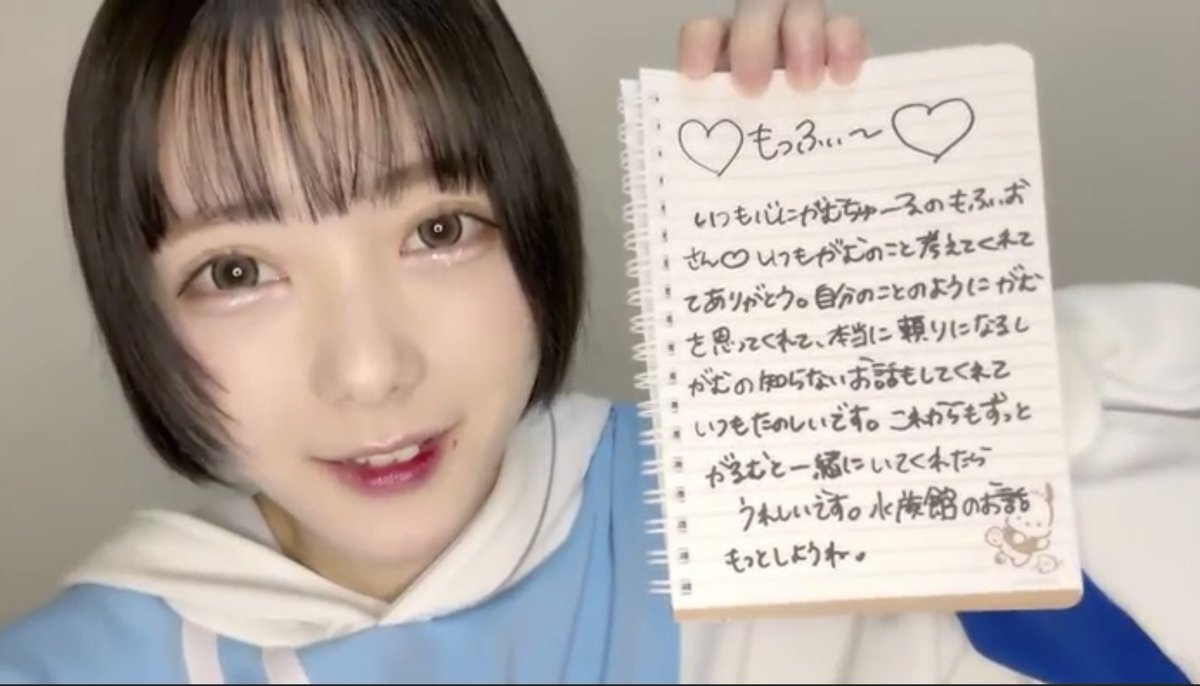 ♡もっふぃ〜♡
いつも心にがむちゅーるのもふぃお
さん♡いつもがむのこと考えてくれて
てありがとう。自分のことのようにがむ
を思ってくれて、本当に頼りになるし
がむの知らないお話もしてくれて
いつもたのしいです。これからもずっと
がるむと一緒にいてくれたら
うれしいです。水族館のお話
もっとしようね。